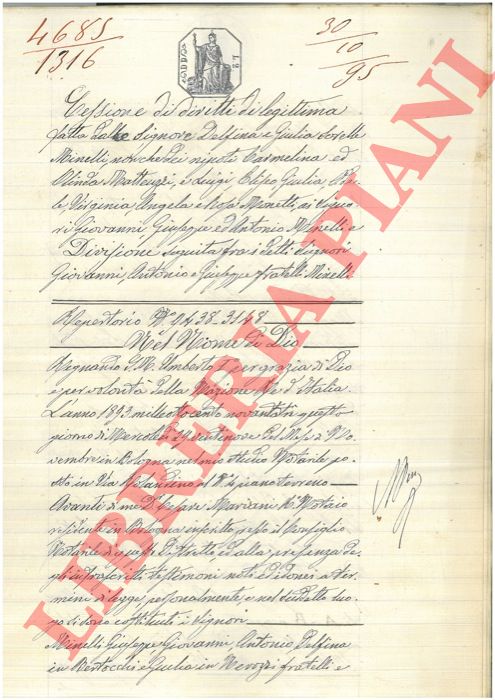 4685
1316
30
10
95
Cessione di diritti di legittima
fatta dalle Signore Delfina e Giulia sorelle
Minelli, nonchè dai nipoti Carmelina ed
Olinda Matteuzzi, e Luigi, Elisa, Giulia,
Virginia Angela e Minelli, ai Signo
ri Giovanni, Giuseppe ed Antonio Minelli e
Divisione seguita fra i detti Signori
Giovanni, Antonio e Giuseppe fratelli Minelli
Repertorio N° 9438-3148
Nel Nome di Dio
Regnando S. M. Umberto I per grazia di Dio
e per volontà della Nazione Re d'Italia.
L'anno 1893 milleottocento novantatre questo
giorno di Mercoledì 29 ventinove del Mese 9bre No
vembre in Bologna nel mio studio Notarile po
sto in Via N° 4 piano terreno
Avanti di me Dr. Cesare Marciani R° Notaio
residente in Bologna inscritto presso il Consiglio
Notarile di questo Distretto ed alla presenza de
gli infrascritti testimoni noti ed idonei a ter
mini di legge, personalmente e nel suddetto luo
go si sono costituiti i Signori
Minelli Giuseppe Giovanni, Antonio, Delfina
in Bertocchi e Giulia in Merozzi fratelli e
LIBRERIA PIANI